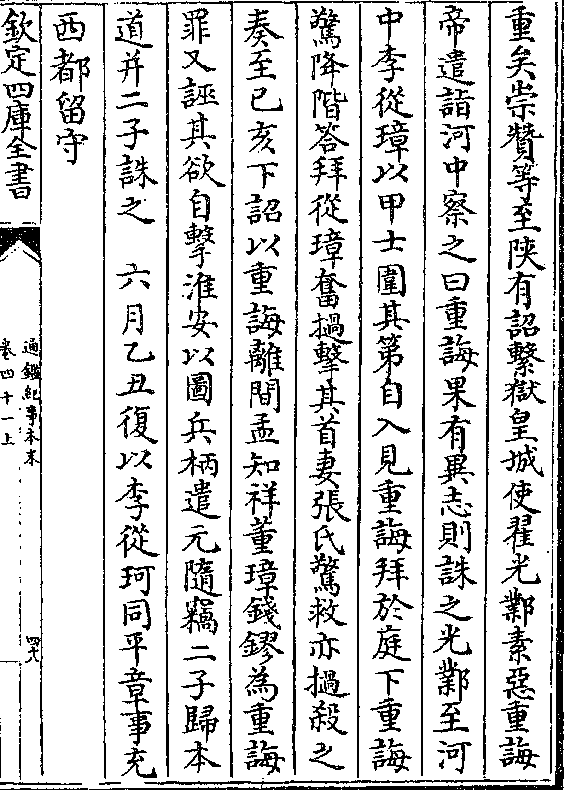 重矣崇贊等至陜有詔繫獄皇城使翟光鄴素惡重誨
帝遣詣河中察之曰重誨果有異志則誅之光鄴至河
中李從璋以甲士圍其第自入見重誨拜於庭下重誨
驚降階答拜從璋奮撾擊其首妻張氏驚救亦撾殺之
奏至已亥下詔以重誨離間孟知祥董璋錢鏐為重誨
罪又誣其欲自擊淮安以圖兵柄遣元隨竊二子歸本
道并二子誅之　六月乙丑復以李從珂同平章事充
西都留守
欽定四庫全書
通鑑紀事本末
卷四十一上
四八